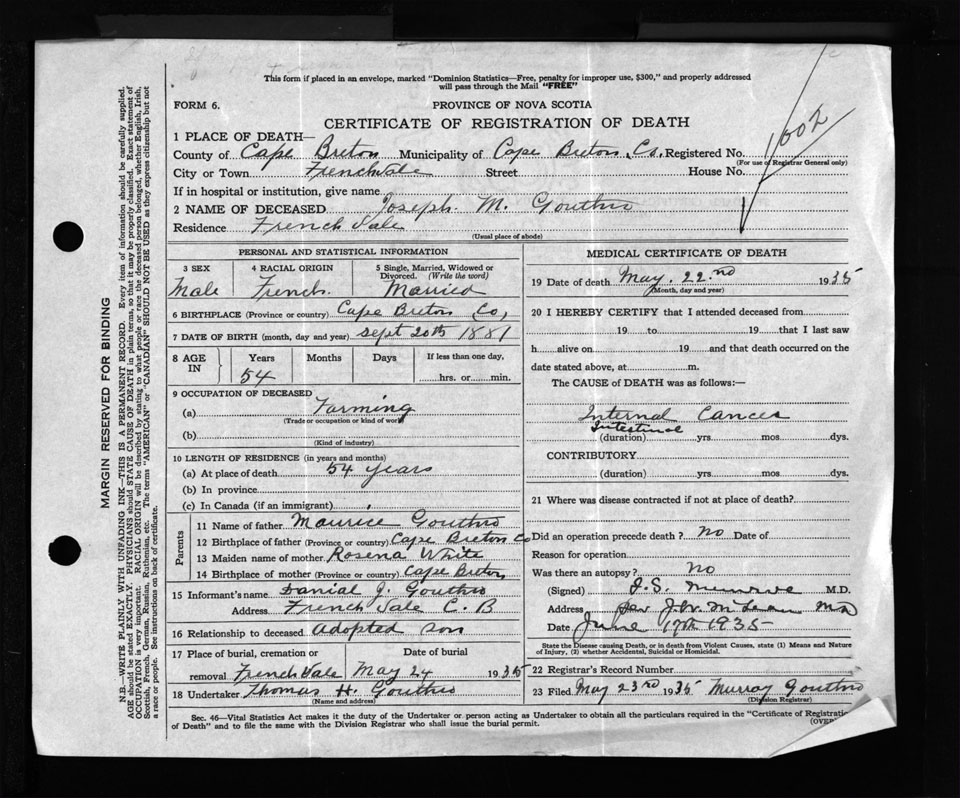 This form if placed in an envelope, marked "Dominion Statistics—Free, penalty for improper use, $300," and properly addressed
will pass through the Mail "FREE"
FORM 6.
PROVINCE OF NOVA SCOTIA
CERTIFICATE OF REGISTRATION OF DEATH
1002
1 PLACE OF DEATH—
County of Cape Breton Municipality of Cape Breton Co. Registered No.
(For use of Registrar General only)
City or Town Frenchvale Street House No.
If in hospital or institution, give name
2 NAME OF DECEASED Joseph. M. Gouthro
Residence French Vale
(Usual place of abode)
PERSONAL AND STATISTICAL INFORMATION
3 SEX Male
4 RACIAL ORIGIN French.
5 Single, Married, Widowed or Divorced. (Write the word) Married
6 BIRTHPLACE (Province or country) Cape Breton Co,
7 DATE OF BIRTH (month, day and year) Sept 20th 1881
8 AGE IN Years 54 Months Days If less than one day, hrs. or min.
9 OCCUPATION OF DECEASED
(a) Farming
(Trade or occupation or kind of work)
(b)
(Kind of industry)
10 LENGTH OF RESIDENCE (in years and months)
(a) At place of death 54 years
(b) In province
(c) In Canada (if an immigrant)
Parents
11 Name of father Maurice Gouthro
12 Birthplace of father (Province or country) Cape Breton Co
13 Maiden name of mother Rosena White
14 Birthplace of mother (Province or country) Cape Breton
15 Informant's name Danial J. Gouthro
Address French Vale C. B
16 Relationship to deceased adopted son
17 Place of burial, cremation or removal French Vale
Date of burial May 24 1935
18 Undertaker Thomas H. Gouthro
(Name and address)
MEDICAL CERTIFICATE OF DEATH
19 Date of death May 22nd 1935
(Month, day and year)
20 I HEREBY CERTIFY that I attended deceased from
19 to 19 that I last saw
h alive on 19 and that death occurred on the
date stated above, at m.
The CAUSE of DEATH was as follows:—
Internal Cancer
Intestinal
(duration) yrs. mos. dys.
CONTRIBUTORY
(duration) yrs. mos. dys.
21 Where was disease contracted if not at place of death?
Did an operation precede death? No Date of
Reason for operation
Was there an autopsy? No
(Signed) M.D.
Address J.W. McLean MD
Date June 17th 1935
State the Disease causing Death, or in death from Violent Causes, state (1) Means and Nature
of Injury, (2) whether Accidental, Suicidal or Homicidal.
22 Registrar's Record Number
23 Filed May 23rd 1935 Murray Gouthro
(Division Registrar)
Sec. 46—Vital Statistics Act makes it the duty of the Undertaker or person acting as Undertaker to obtain all the particulars required in the "Certificate of Registration
of Death" and to file the same with the Division Registrar who shall issue the burial permit.
(OVER)
MARGIN RESERVED FOR BINDING
N.B.—WRITE PLAINLY WITH UNFADING INK—THIS IS A PERMANENT RECORD. Every item of information should be carefully supplied.
AGE should be stated EXACTLY. PHYSICIANS should STATE CAUSE OF DEATH in plain terms, so that it may be properly classified. Exact statement of
OCCUPATION is very important. RACIAL ORIGIN will be described by stating to what people or race the deceased person belonged, whether English, Irish,
Scottish, French, German, Russian, Ruthenian, etc. The terms "AMERICAN" or "CANADIAN" SHOULD NOT BE USED as they express citizenship but not
a race or people. See instructions on back of certificate.